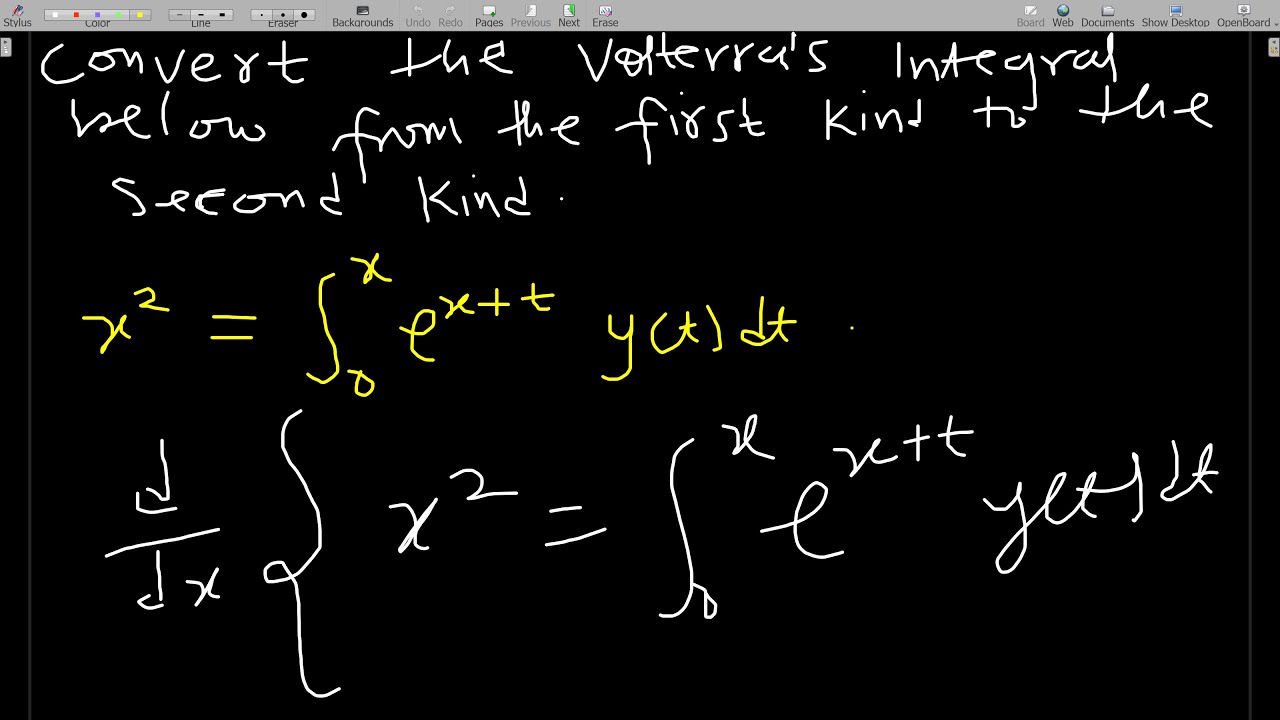 Stylus Color Line Eraser Backgrounds Undo Redo Pages Previous Next Erase Board Web Documents Show Desktop OpenBoard
Convert the Volterra's Integral
below from the first kind to the
second kind.
x² = ∫₀ˣ e^{x+t} y(t)dt.
d/dx { x² = ∫₀ˣ e^{x+t} y(t)dt